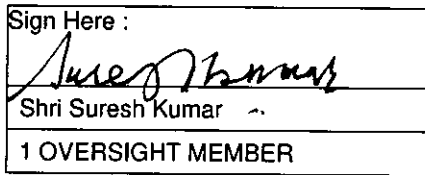 Sign Here :
Suresh Kumar
Shri Suresh Kumar
1 OVERSIGHT MEMBER